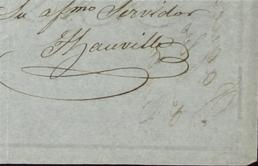 Su afmo Servidor
Hauville